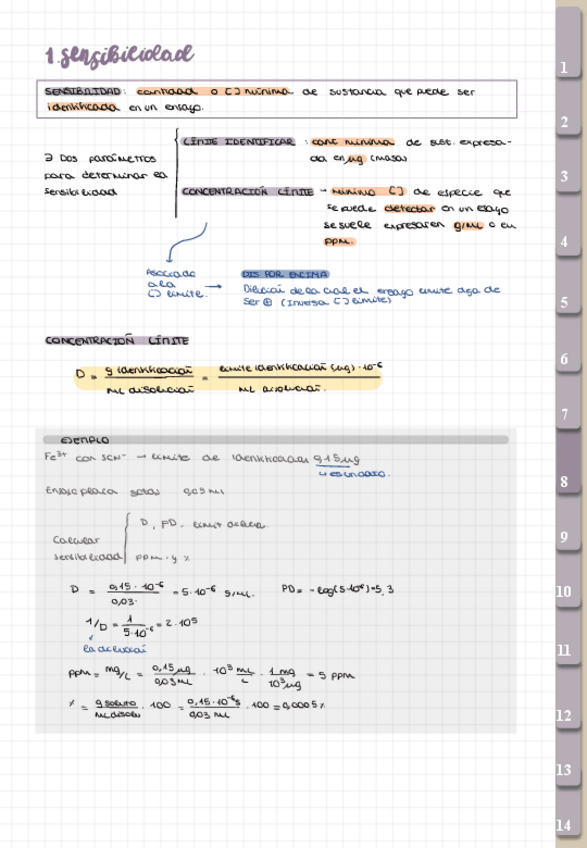 1. sensibilidad
SENSIBILIDAD: cantidad o [] mínima de sustancia que puede ser
identificada en un ensayo.
LÍMITE IDENTIFICAR: conc mínima de sust. expresa-
da en µg (masa)
∃ Dos parámetros
para determinar la
sensibilidad
CONCENTRACIÓN LÍMITE → mínima [] de especie que
se puede detectar en un ensayo
se suele expresar en g/mL o en
ppm.
Asociada
a la
[] límite. →
DIS POR ENCIMA
Dilución de la cual el ensayo límite deja de
ser ⊕ (Inversa [] límite)
CONCENTRACIÓN LÍMITE
D = g identificación / mL disolución = límite identificación (µg) · 10⁻⁶ / mL disolución.
EJEMPLO
Fe³⁺ con SCN⁻ → límite de identificación 0,15 µg
↳ estándar.
Ensayo placa gotas 0,03 mL
Calcular
sensibilidad
D, PD, límit dilución
ppm y %
D = 0,15 · 10⁻⁶ / 0,03 = 5 · 10⁻⁶ g/mL. PD = -log(5·10⁻⁶) = 5,3
1/D = 1 / 5·10⁻⁶ = 2 · 10⁵
la dilución
ppm = mg/L = 0,15 µg / 0,03 mL · 10³ mL / L · 1 mg / 10³ µg = 5 ppm
% = g soluto / mL disolu · 100 = 0,15 · 10⁻⁶ g / 0,03 mL · 100 = 0,0005 %
1
2
3
4
5
6
7
8
9
10
11
12
13
14